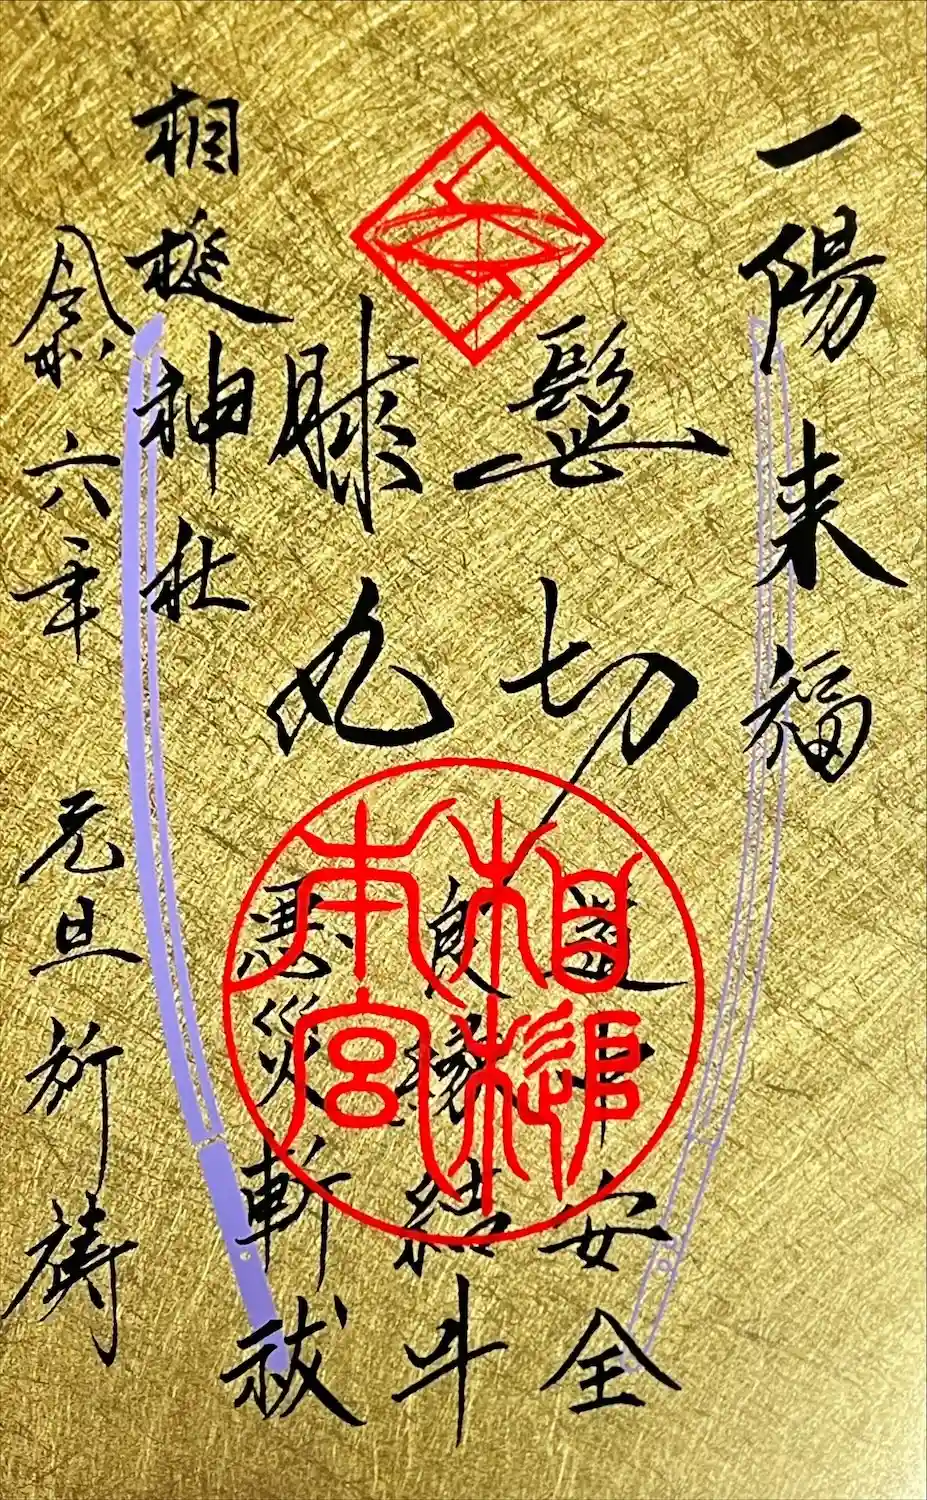 一陽来福
髭切
膝丸
道中安全
良縁結
悪災斬祓
相槌神社
令和六年 元旦祈祷
相槌
本宮